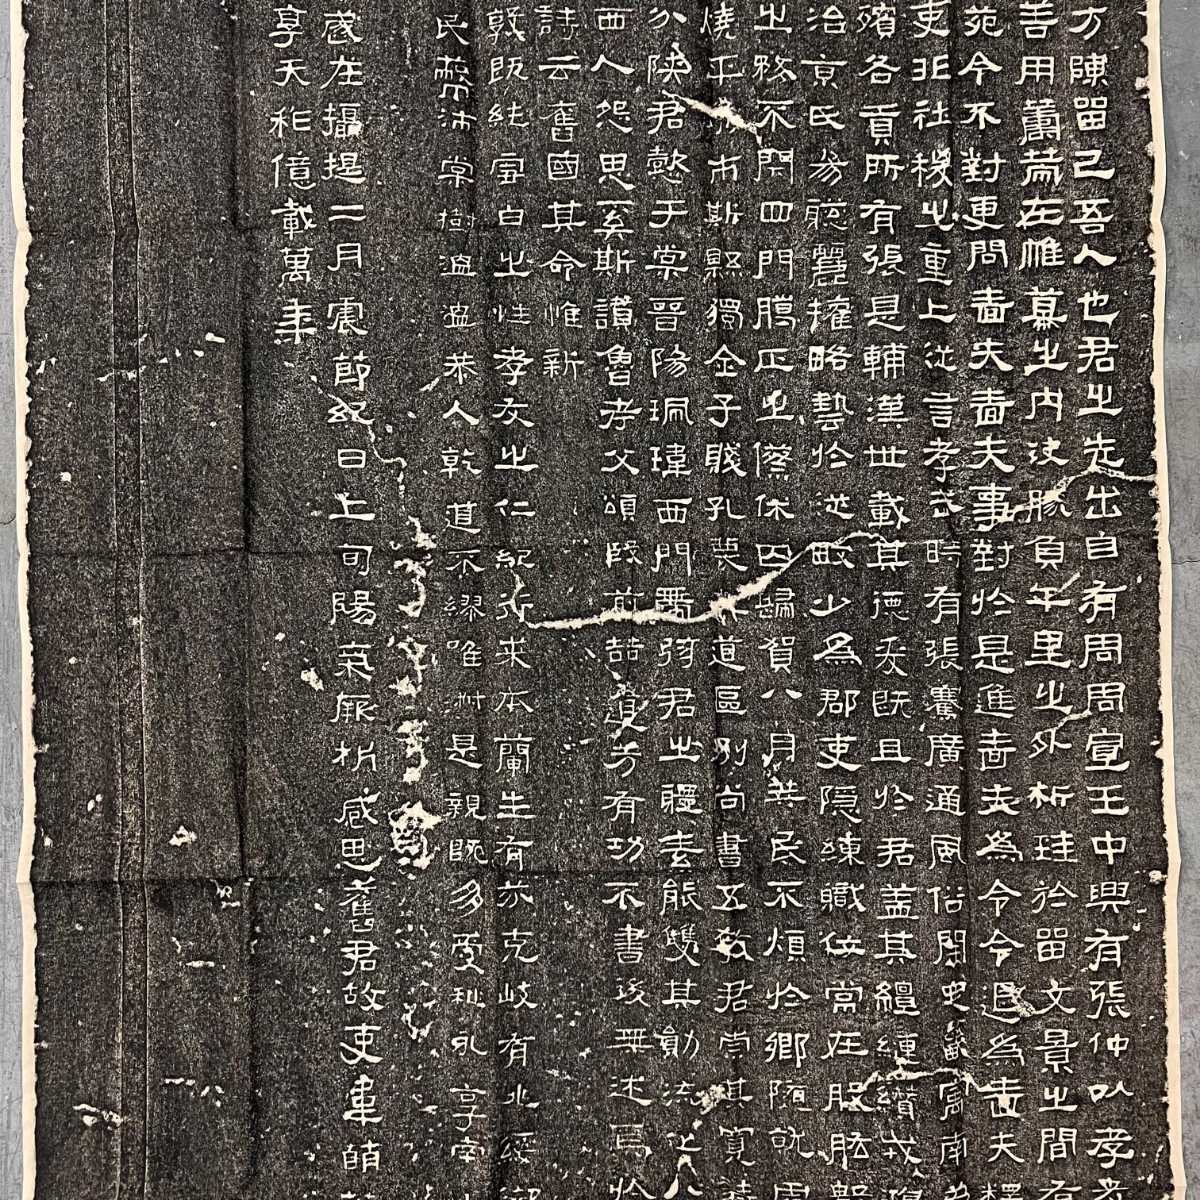 方陳留己吾人也君之先出自有周周宣王中興有張仲以孝
善用籌策在帷幕之內決勝負千里之外析珪於留文景之間有
苑令不對更問嗇夫嗇夫事對於是進嗇夫為令令退為嗇夫釋
吏非社稷之重上從言孝武時有張騫廣通風俗開定畿寓南苞
殯各貢所有張是輔漢世載其德爰既且於君蓋其繵縺纘戎鴻
治京氏易聰麗權略藝於從畋少為郡吏隱練職位常在股肱數
之務不閉四門臘正之僚休囚歸賀八月筭民不煩於鄉隨就虛
燒平城市斯縣獨全子賤孔蔑其道區別尚書五教君崇其寬詩
分陝君懿于棠晉陽珮瑋西門帶弦君之體素能雙其勛流化八
西人怨思奚斯讚魯考父頌殷前喆遺芳有功不書後無述焉於
詩云舊國其命惟新
敦既純雪白之性孝友之仁紀行來本蘭生有芬克岐有兆綏御
民蔽沛棠樹溫溫恭人乾道不繆唯淑是親既多受祉永享南山
歲在攝提二月震節紀日上旬陽氣厥析感思舊君故吏韋萌等
享天祚億載萬年